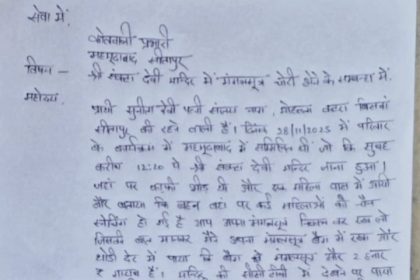 सेवा में,
कोतवाली प्रभारी
महमूदाबाद, सीतापुर
विषय - श्री संकटा देवी मन्दिर में मंगलसूत्र चोरी होने के सम्बन्ध में.
महोदय,
प्रार्थी सुनीता देवी पत्नी संजय
सीतापुर की रहने वाली है। दिनांक 28/11/2025 में परिवार
के कार्यक्रम में महमूदाबाद में सम्मिलित थी जो कि सुबह
करीब 12:20 पे श्री संकटा देवी मन्दिर जाना हुआ।
जहां पर काफी भीड़ थी और एक महिला पास में आयी
और बताया कि बहन यहां पर कई महिलाओं की चैन
स्नेचिंग हो गई है आप अपना मंगलसूत्र निकाल कर रख लो
जिसकी बात मानकर मैंने अपना मंगलसूत्र बैग में रखा और
थोड़ी देर में पाया कि बैग से मंगलसूत्र और 2 हजार
रु गायब हैं। मन्दिर की सीसीटीवी में देखने पर पाया